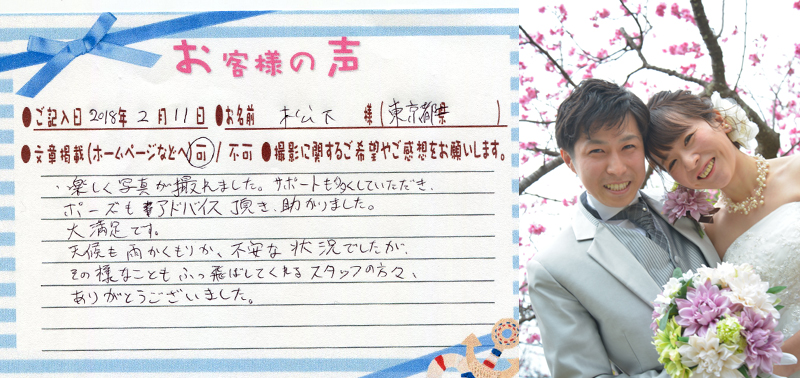 お客様の声
●ご記入日 2018年 2月 11日 ●お名前 松下 様(東京都県)
●文章掲載(ホームページなどへ) 可 / 不可 ●撮影に関するご希望やご感想をお願いします。
・楽しく写真が撮れました。サポートも多くしていただき、
ポーズもアドバイス頂き、助かりました。
大満足です。
天候も雨かくもりか、不安な状況でしたが、
その様なこともふっ飛ばしてくれるスタッフの方々、
ありがとうございました。